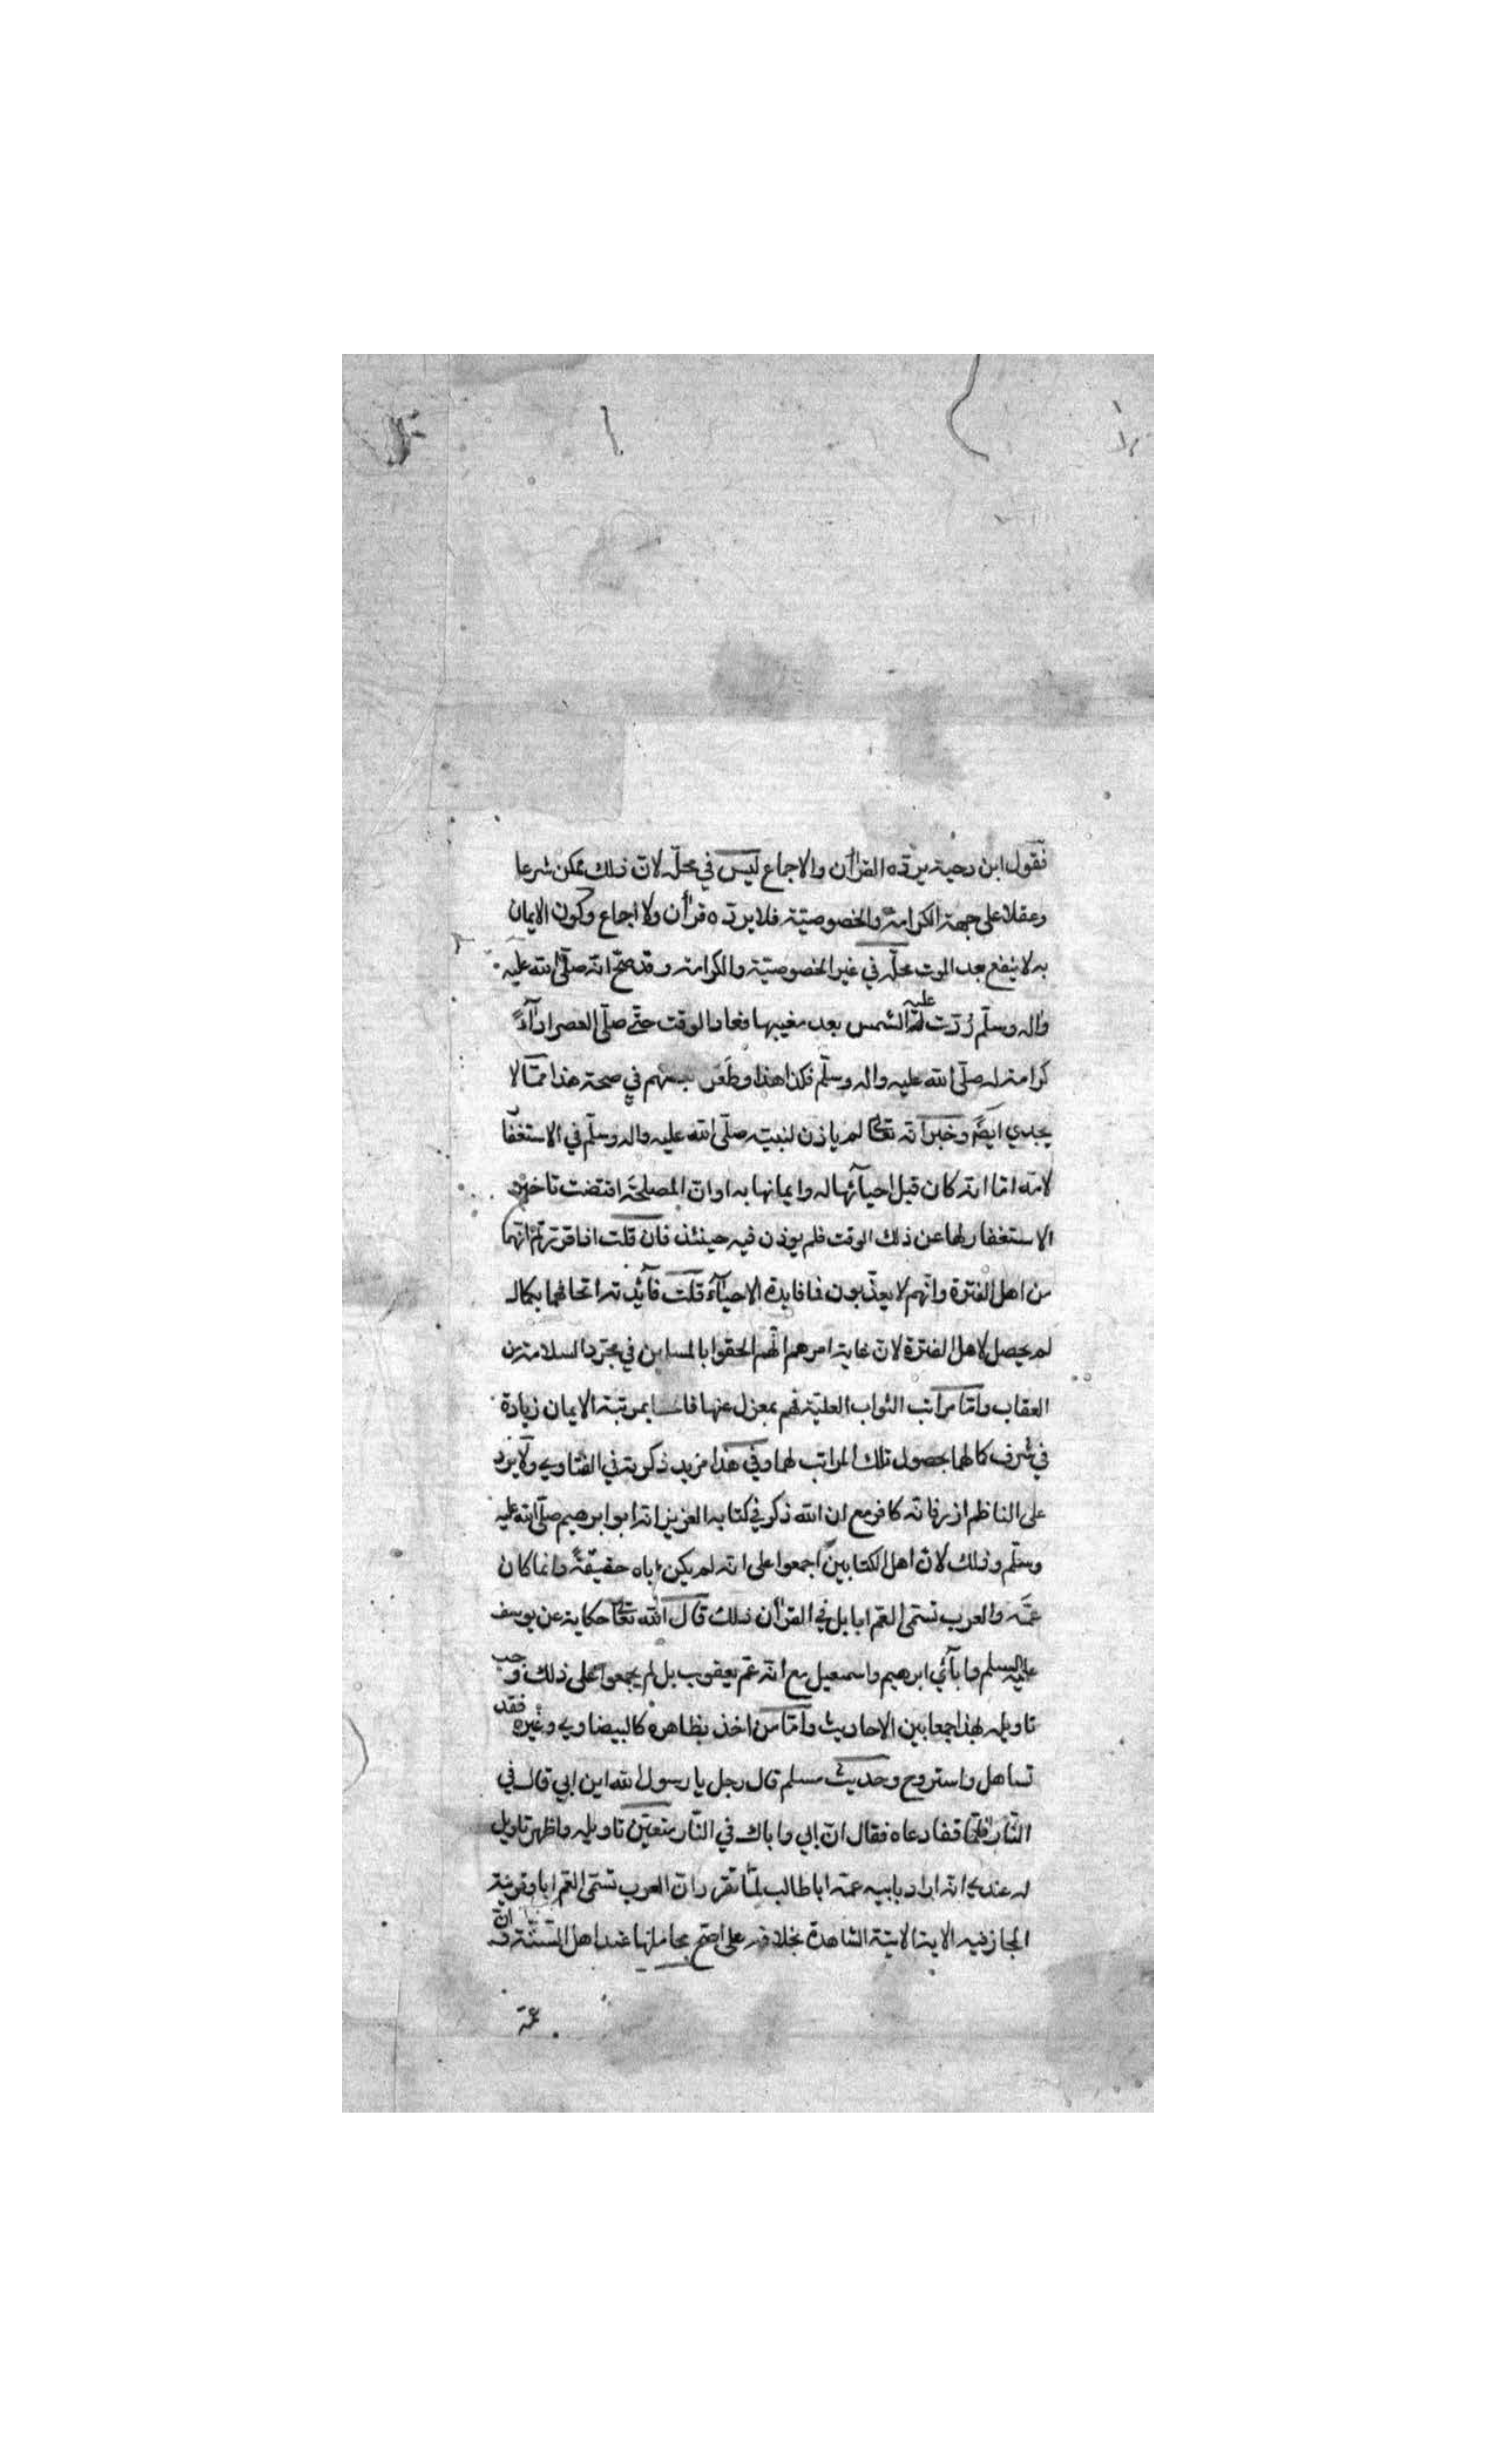 فقول ابن دحية يردّه القرآن والاجماع ليس في محلّه لانّ ذلك ممكن شرعا
وعقلا على جهة الكرامة والخصوصيّة فلا يردّه قرآن ولا اجماع وكون الايمان
به لا ينفع بعد الموت محلّه في غير الخصوصيّة والكرامة وقد صحّ انّه صلّى الله عليه
واله وسلّم رُدّت عليه الشمس بعد مغيبها فعاد الوقت حتّى صلّى العصر ادآءً
كرامة له صلّى الله عليه واله وسلّم فكذا هذا وطعن بعضهم في صحة هذا ممّا لا
يجدي ايضًا وخبر انّه تعالى لم ياذن لنبيّه صلّى الله عليه واله وسلّم في الاستغفا
لامّه امّا انّه كان قبل احيآئها له وايمانها به او انّ المصلحة اقتضت تاخير
الاستغفار لها عن ذلك الوقت فلم يوذن فيه حينئذ فان قلت اذا قررتم انهما
من اهل الفترة وانّهم لا يعذّبون فما فايدة الاحيآء قلت فآئدته اتحافهما بكمال
لم يحصل لاهل الفترة لانّ غاية امرهم انّهم الحقوا بالمسلمين في مجرّد السلامة من
العقاب وامّا مراتب الثواب العليّة فهم بمعزل عنها فاتحفا بمرتبة الايمان زيادة
في شرف كمالهما بحصول تلك المراتب لهما وفي هذا مزيد ذكرته في الفتاوي ولا يرد
على الناظم ازر فانّه كافر مع ان الله ذكر في كتابه العزيز انّه ابو ابرهيم صلّى الله عليه
وسلّم وذلك لانّ اهل الكتابين اجمعوا على انّه لم يكن اباه حقيقةً وانما كان
عمّه والعرب تسمّى العم ابا بل في القرآن ذلك قال الله تعالى حكاية عن يوسف
عليه السلم وابآئي ابرهيم واسمعيل مع انّه عم يعقوب بل لو لم يجمعوا على ذلك وجب
تاويله بهذا جمعا بين الاحاديث وامّا من اخذ بظاهره كالبيضاوي وغيره فقد
تساهل واستروح وحديث مسلم قال رجل يا رسول الله اين ابي قال في
النّار فلمّا قفا دعاه فقال انّ ابي واباك في النّار يتعيّن تاويله واظهر تاويل
له عندي انّه اراد بابيه عمّه ابا طالب لمّا تقرر انّ العرب تسمّى العمّ ابا وقرينة
المجاز فيه الاية الاتية الشاهدة بخلافه على اصحّ محاملها عند اهل السّنّة وانّ
عمّه